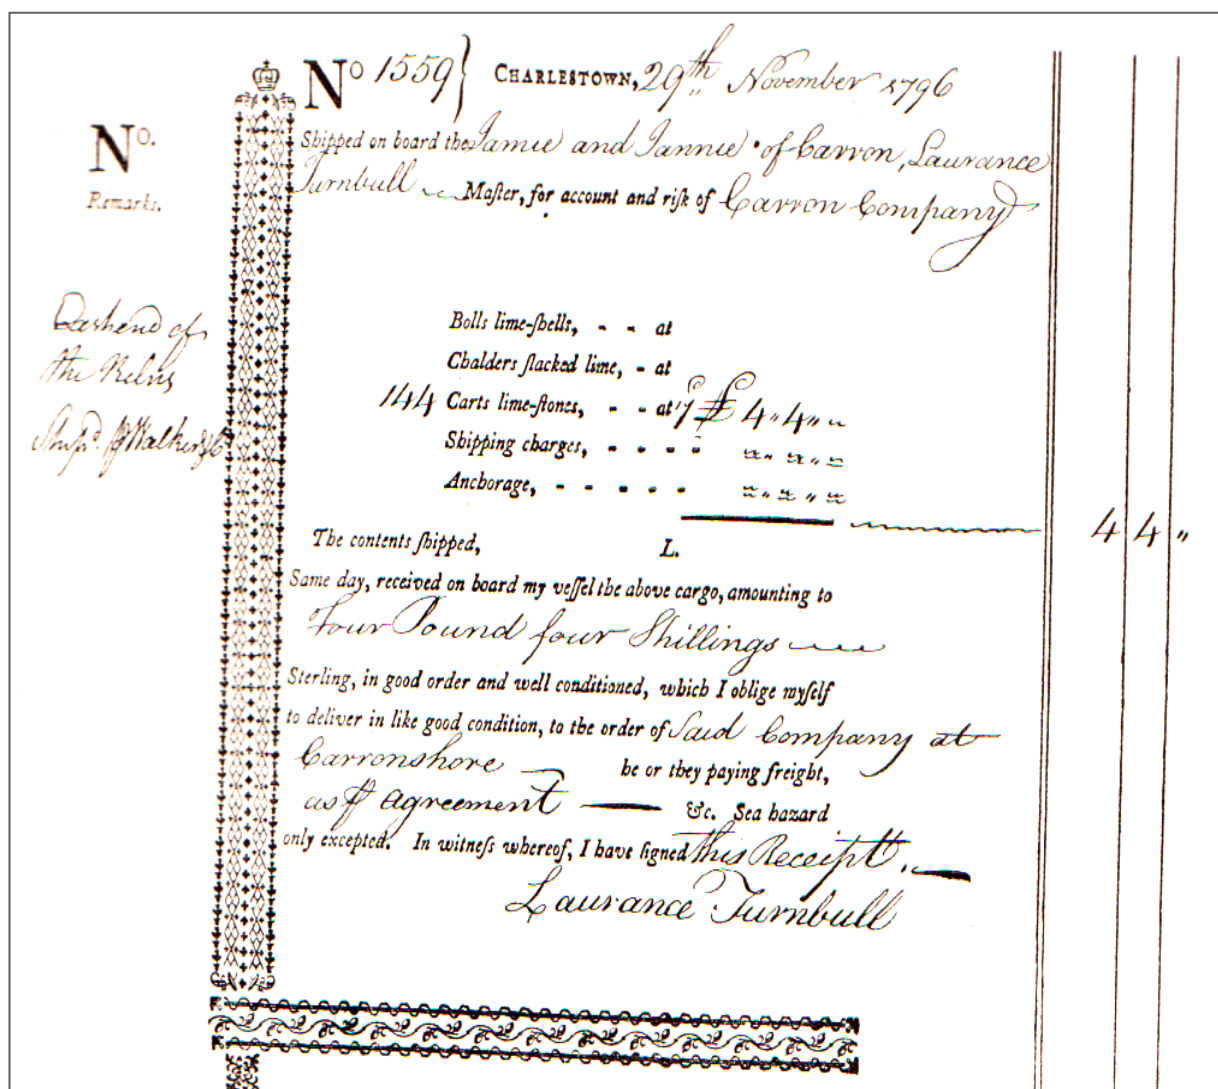 No 1559} CHARLESTOWN, 29th November 1796
No.
Remarks.
Shipped on board the Jamie and Jannie of Carron, Laurance
Turnbull Maſter, for account and riſk of Carron Company
Bolls lime-ſhells, - - at
Chalders ſlacked lime, - at
144 Carts lime-ſtones, - - at 7 £ 4 " 4 " "
Shipping charges, - - - -
Anchorage, - - - - -
4 4 "
The contents ſhipped, L.
Same day, received on board my veſſel the above cargo, amounting to
Four Pound four Shillings
Sterling, in good order and well conditioned, which I oblige myſelf
to deliver in like good condition, to the order of Said Company at
Carronshore he or they paying freight,
as ⅌ agreement &c. Sea hazard
only excepted. In witneſs whereof, I have ſigned this Receipt.
Laurance Turnbull
of
the
Walker